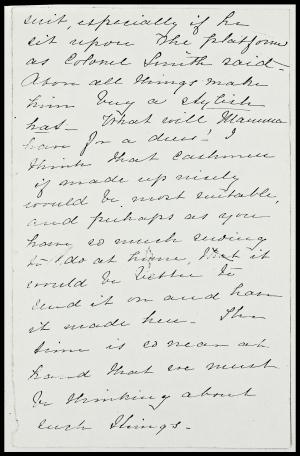 suit, especially if he
sit upon the platform
as Colonel Smith said.
Above all things make
him buy a stylish
hat. What will Mamma
have for a dress! I
think that Cashmere
if made up nicely
would be most suitable,
and perhaps as you
have so much sewing
to do at home, that it
would be better to
send it on and have
it made here. The
time is so near at
hand that we must
be thinking about
such things.